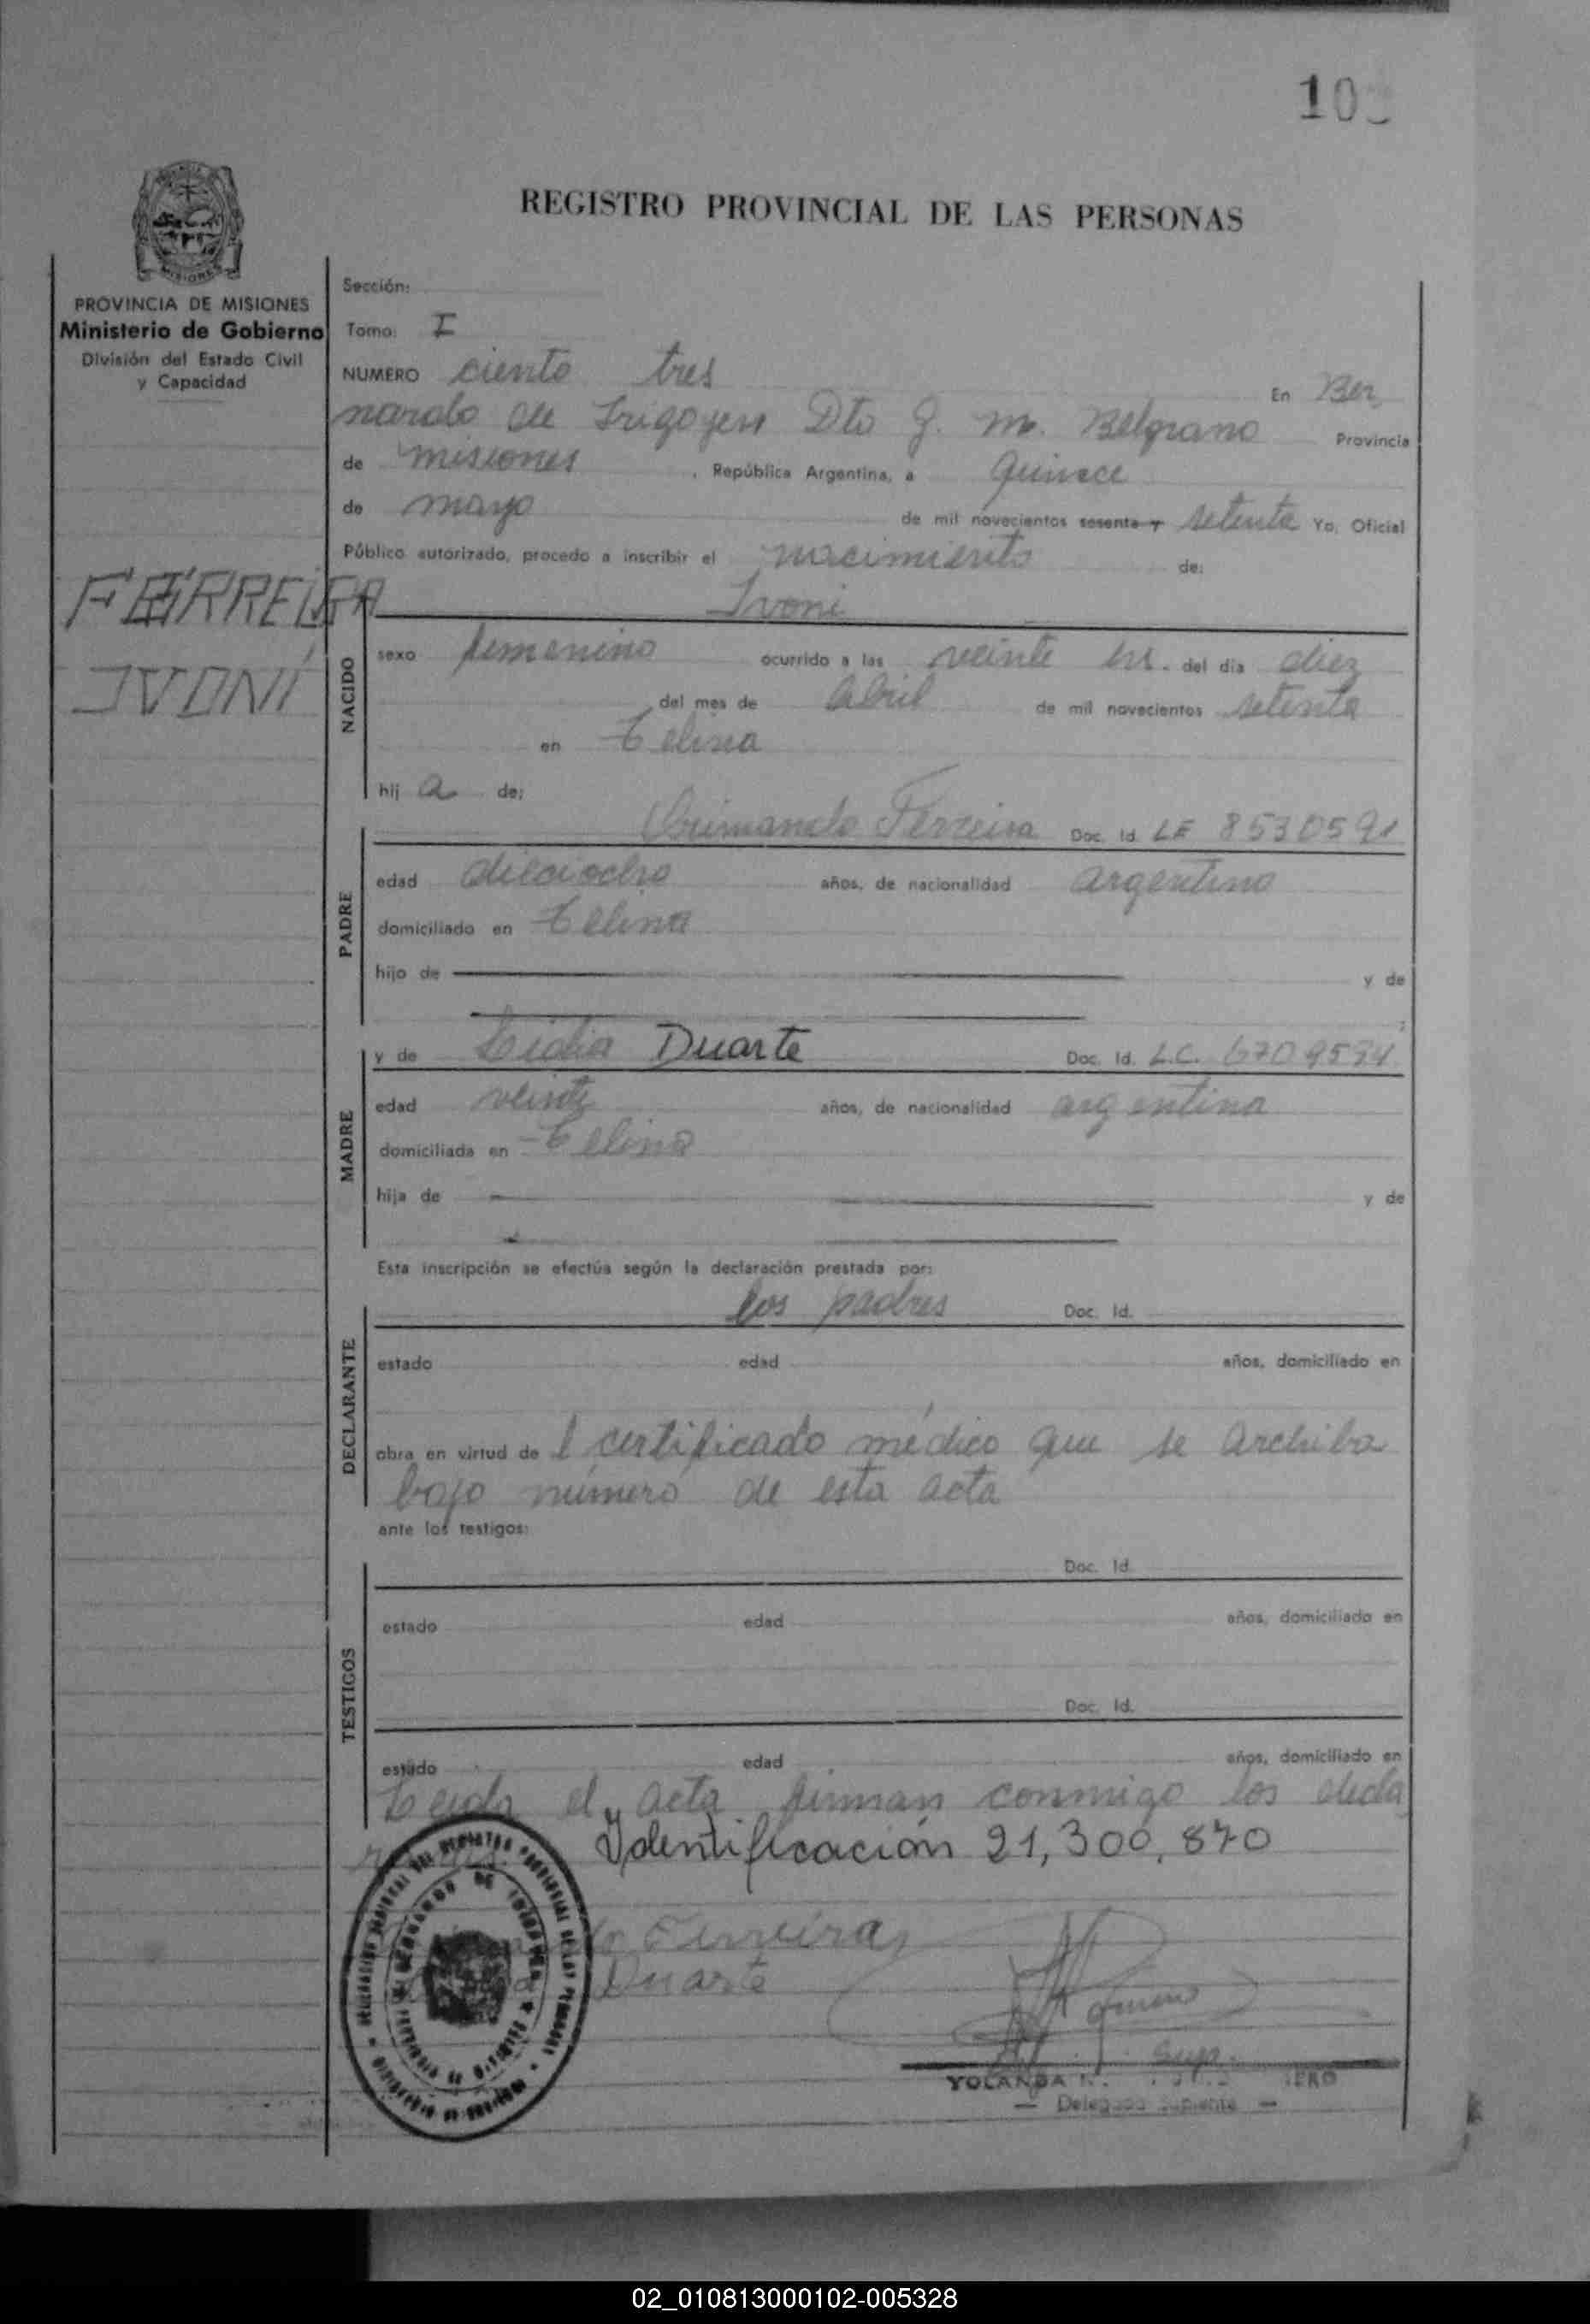 10
REGISTRO PROVINCIAL DE LAS PERSONAS
MISIONES
PROVINCIA DE MISIONES
Ministerio de Gobierno
División del Estado Civil
y Capacidad
FERREIRA
IVONI
Sección:
Tomo: I
NUMERO ciento tres En Ber
nardo de Irigoyen Dto G. M. Belgrano Provincia
de misiones , República Argentina, a quince
de mayo de mil novecientos sesenta y setenta Yo, Oficial
Público autorizado, procedo a inscribir el nacimiento de:
Ivoni
NACIDO
sexo femenino ocurrido a las veinte hs. del día diez
del mes de Abril de mil novecientos setenta
en Celina
hij a de:
PADRE
Ferreira Doc. Id. LE 8530591
edad dieciocho años, de nacionalidad argentina
domiciliado en Celina
hijo de y de
MADRE
y de Lidia Duarte Doc. Id. L.C. 6709594
edad veinte años, de nacionalidad argentina
domiciliada en Celina
hija de y de
Esta inscripción se efectúa según la declaración prestada por:
DECLARANTE
los padres Doc. Id.
estado edad años, domiciliado en
obra en virtud de l certificado médico que se archiba
bajo número de esta acta
ante los testigos:
TESTIGOS
Doc. Id.
estado edad años, domiciliado en
Doc. Id.
estado edad años, domiciliado en
Leida el acta firman conmigo los decla
Identificación 21,300,870
Ferreira
Duarte
Sup.
YOLANDA
— Delegada Suplente —
02_010813000102-005328